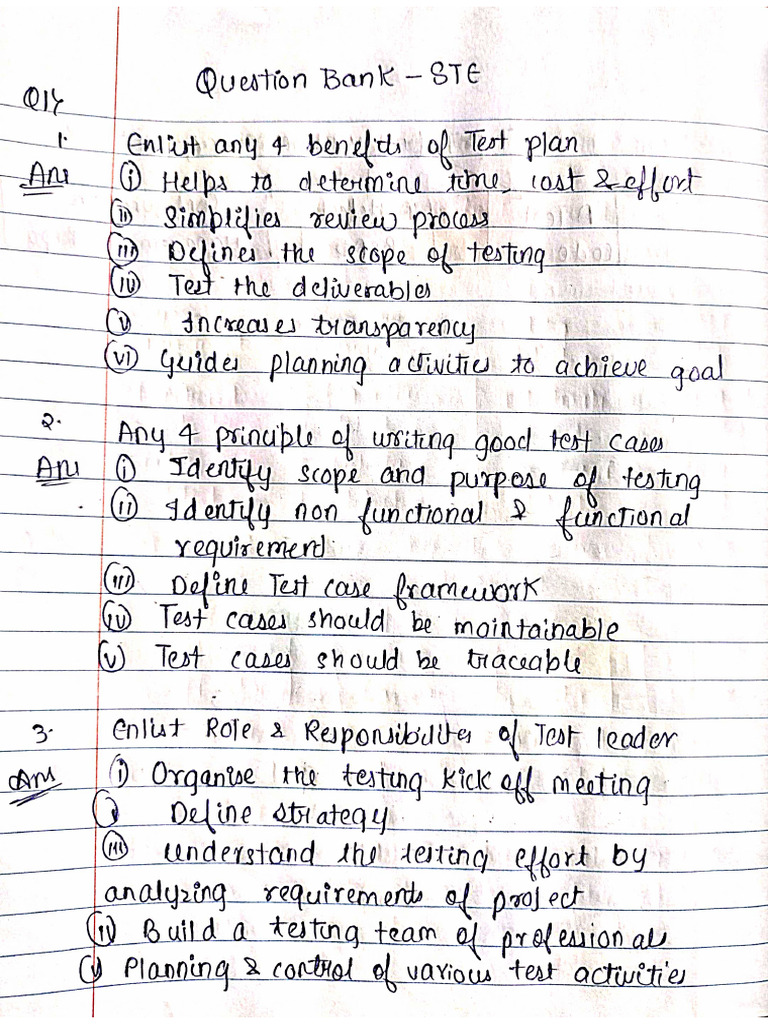 Question Bank - STE
Q1)
1. Enlist any 4 benefits of Test plan
Ans (i) Helps to determine time, cost & effort
(ii) Simplifies review process
(iii) Defines the scope of testing
(iv) Test the deliverables
(v) Increases transparency
(vi) Guides planning activities to achieve goal
2. Any 4 principle of writing good test cases
Ans (i) Identify scope and purpose of testing
(ii) Identify non functional & functional
requirement.
(iii) Define Test case framework
(iv) Test cases should be maintainable
(v) Test cases should be traceable
3. Enlist Role & Responsibilites of Test leader
Ans (i) Organise the testing kick off meeting
Define strategy
(iii) Understand the testing effort by
analyzing requirements of project
(iv) Build a testing team of professionals
(v) Planning & control of various test activities